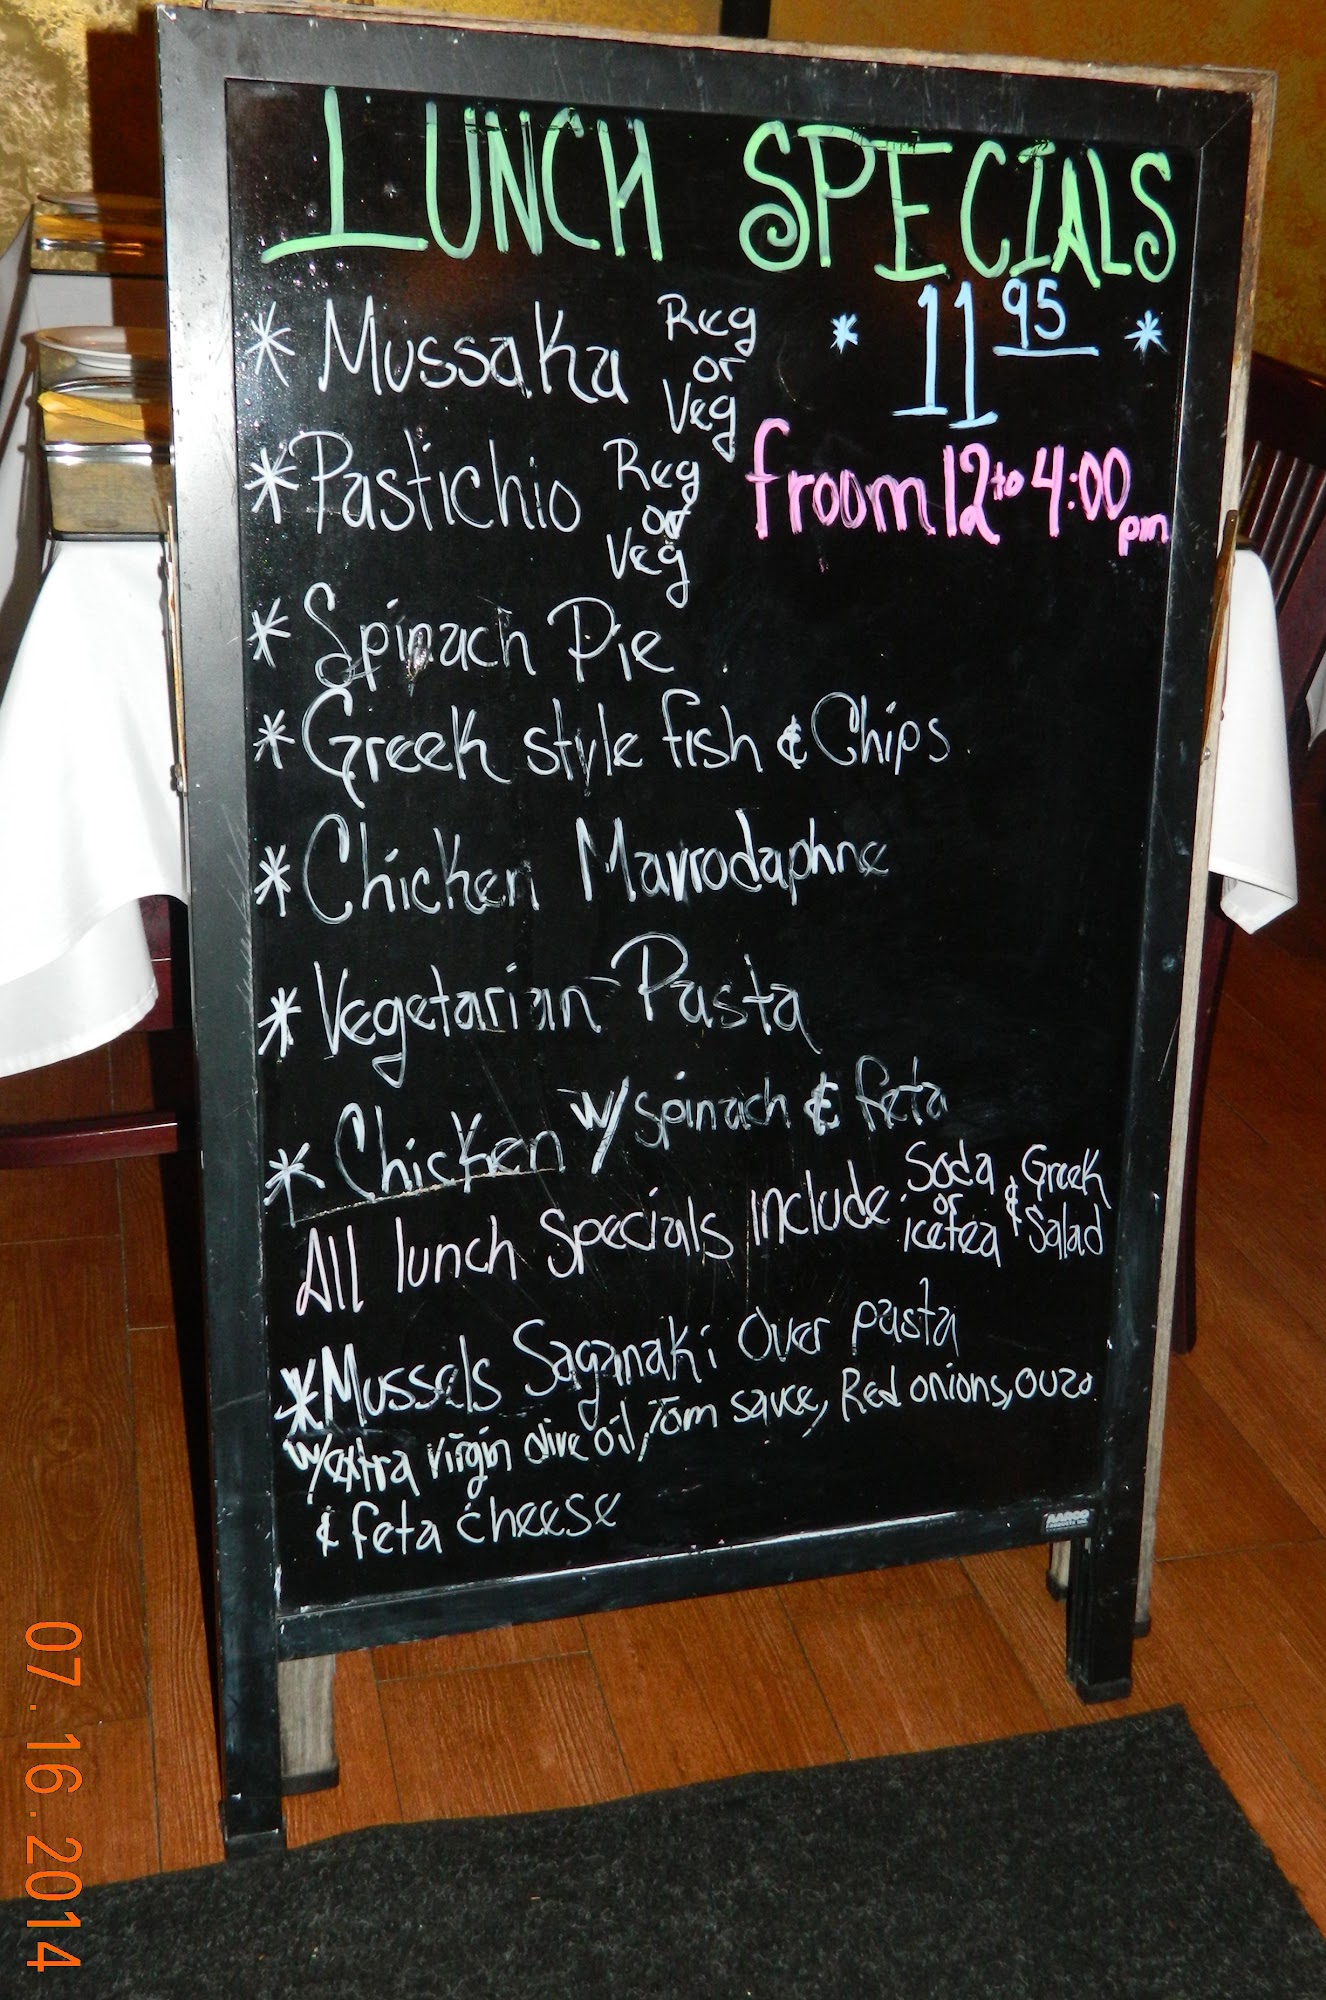 LUNCH SPECIALS
* Mussaka Reg or Veg
* 11 95 *
* Pastichio Reg or Veg
froom 12 to 4:00 pm
* Spinach Pie
* Greek style fish & Chips
* Chicken Mavrodaphne
* Vegetarian Pasta
* Chicken w/ spinach & feta
All lunch specials Include: Soda or icetea & Greek Salad
* Mussels Saganaki Over pasta
w/extra virgin olive oil, Tom sauce, Red onions, ouzo
& feta cheese
AARCO
PRODUCTS INC.
07.16.2014